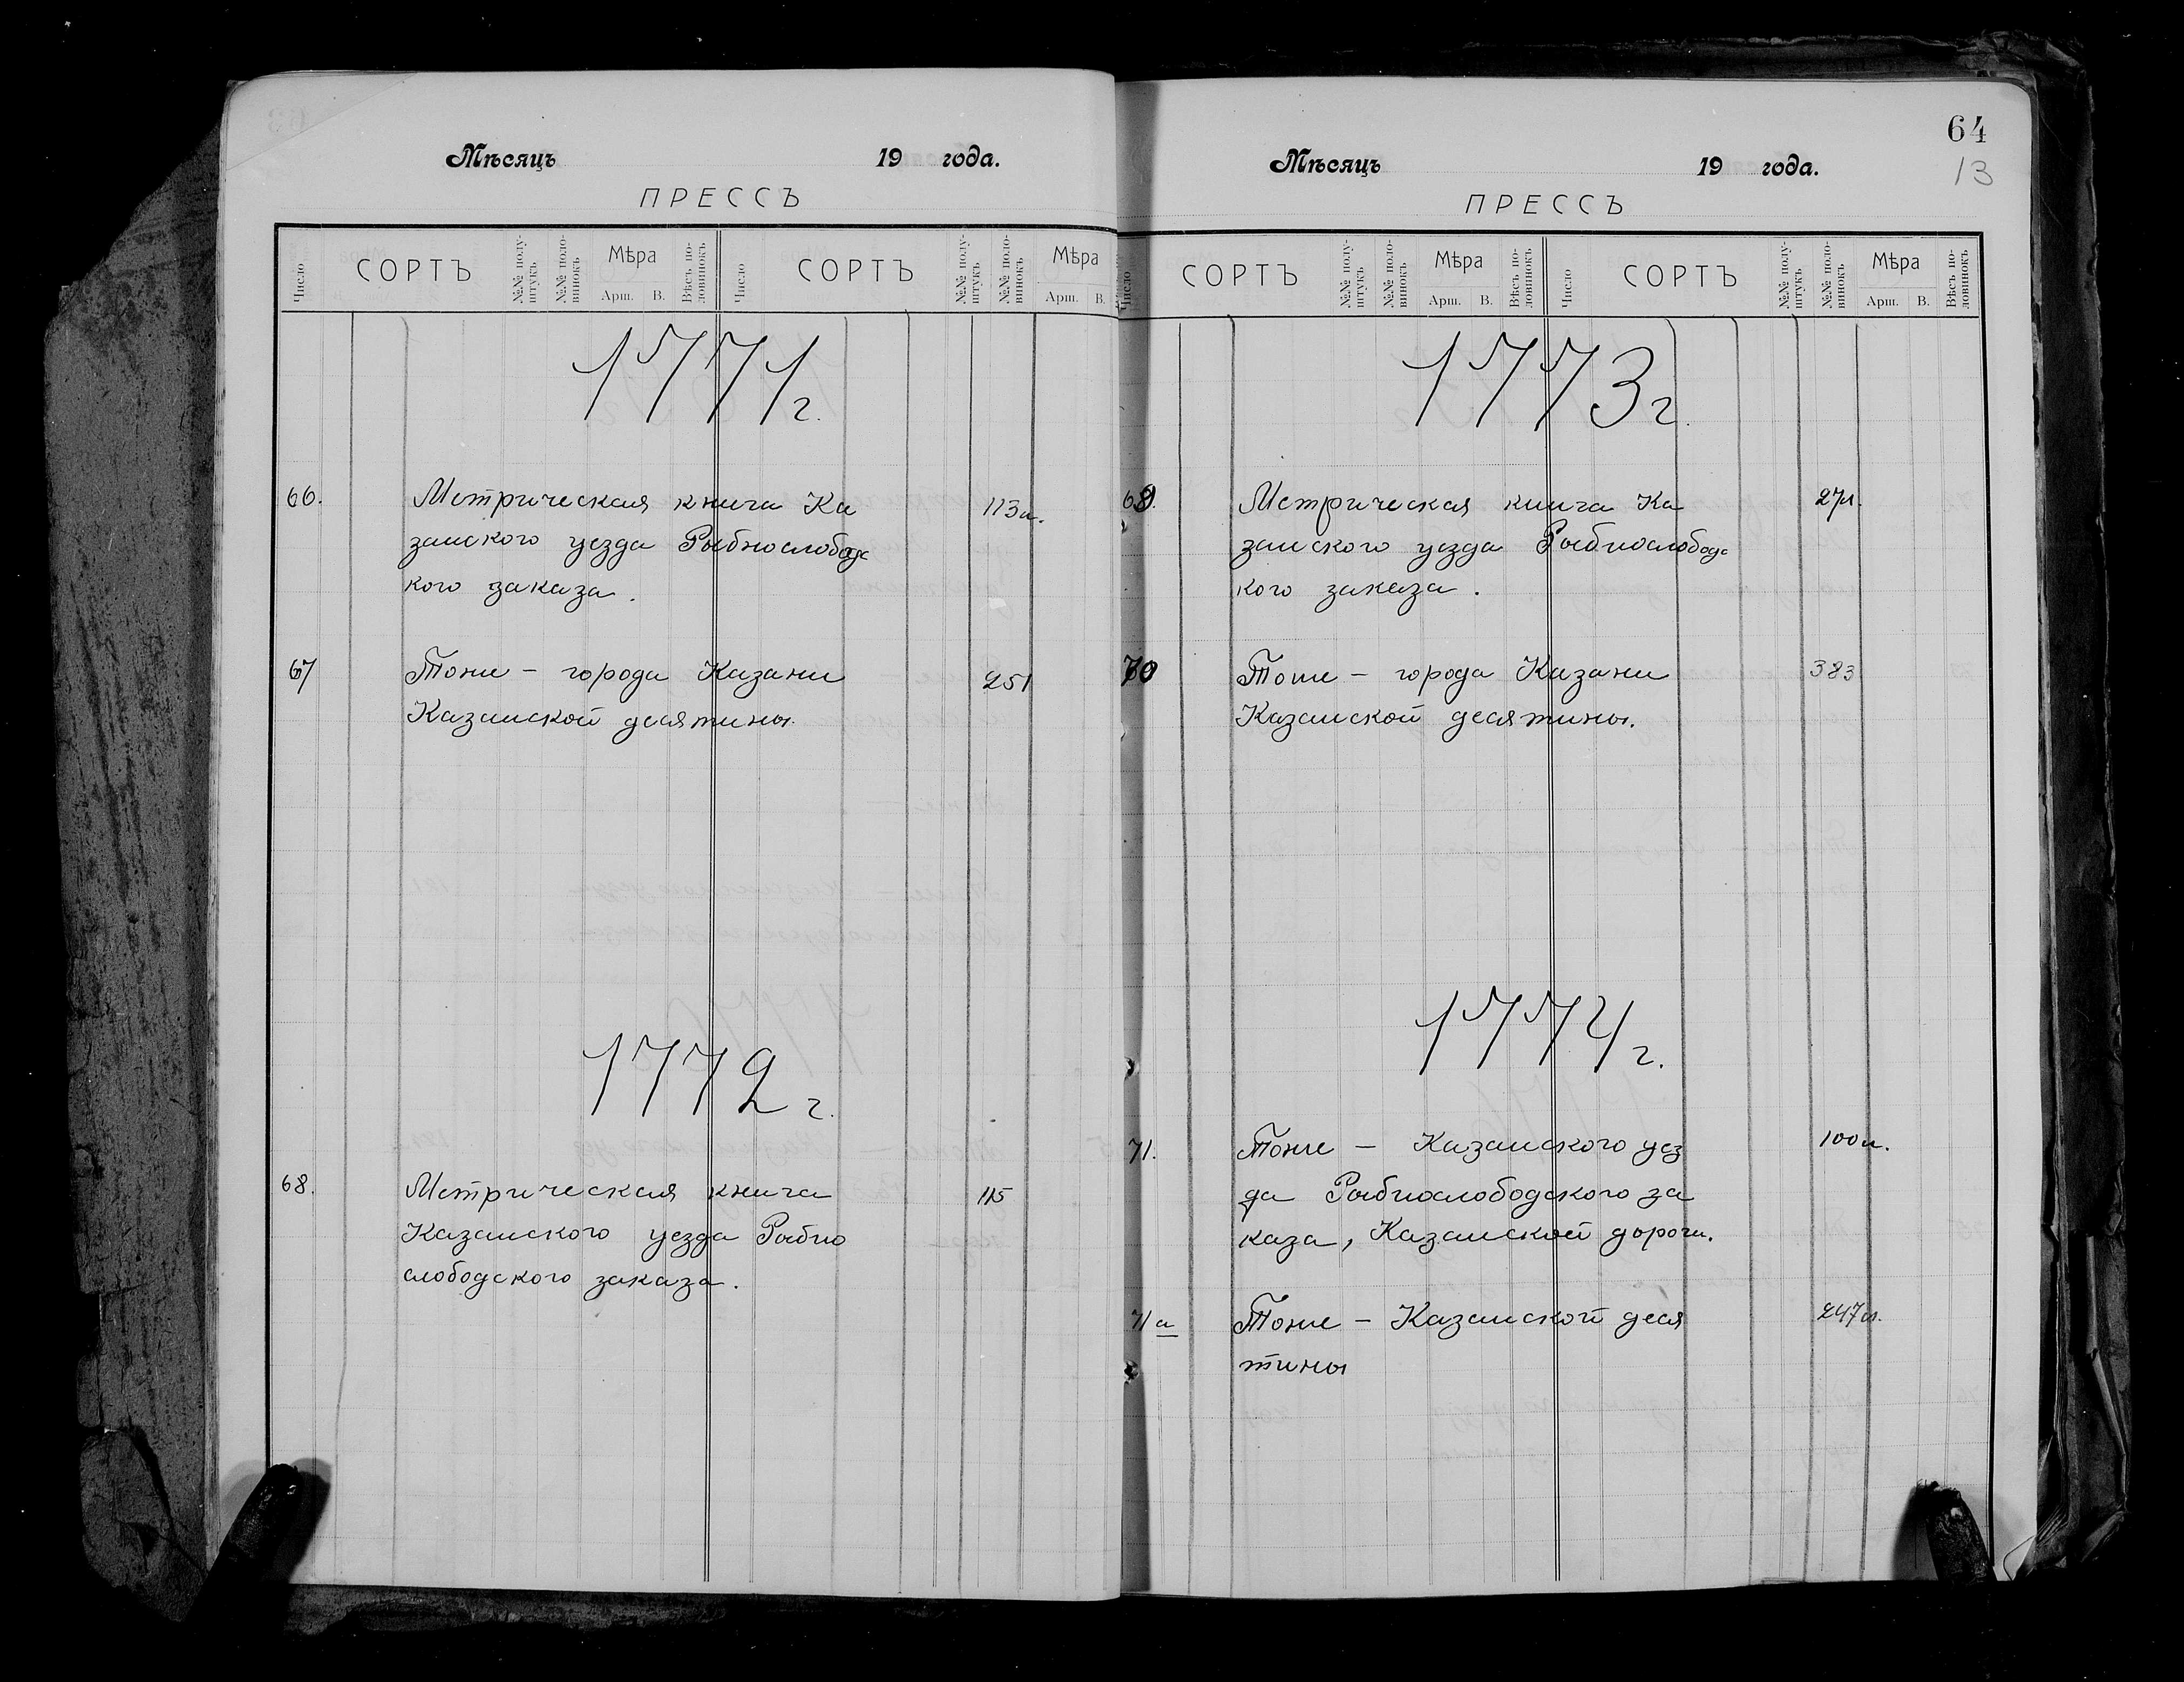 Мѣсяцъ 19 года.
ПРЕССЪ
Число СОРТЪ №№ полу-штукъ №№ поло-винокъ Мѣра Арш. В. Вѣсъ по-ловинокъ Число СОРТЪ №№ полу-штукъ №№ поло-винокъ Мѣра Арш. В.
1771 г.
66. Метрическая книга Ка 113 л.
занского уезда Рыбнослободс
кого заказа.
67 Тоже – города Казани 251
Казанской десятины.
1772 г.
68. Метрическая книга 115
Казанского уезда Рыбно
слободского заказа.
64
13
Мѣсяцъ 19 года.
ПРЕССЪ
Число СОРТЪ №№ полу-штукъ №№ поло-винокъ Мѣра Арш. В. Вѣсъ по-ловинокъ Число СОРТЪ №№ полу-штукъ №№ поло-винокъ Мѣра Арш. В. Вѣсъ по-ловинокъ
1773 г.
69. Метрическая книга Ка 27 л.
занского уезда Рыбнослободс
кого заказа.
70 Тоже – города Казани 383
Казанской десятины.
1774 г.
71. Тоже – Казанского уез 100 л.
да Рыбнослободского за
каза, Казанской дороги.
71 а Тоже – Казанской деся 247 л.
тины